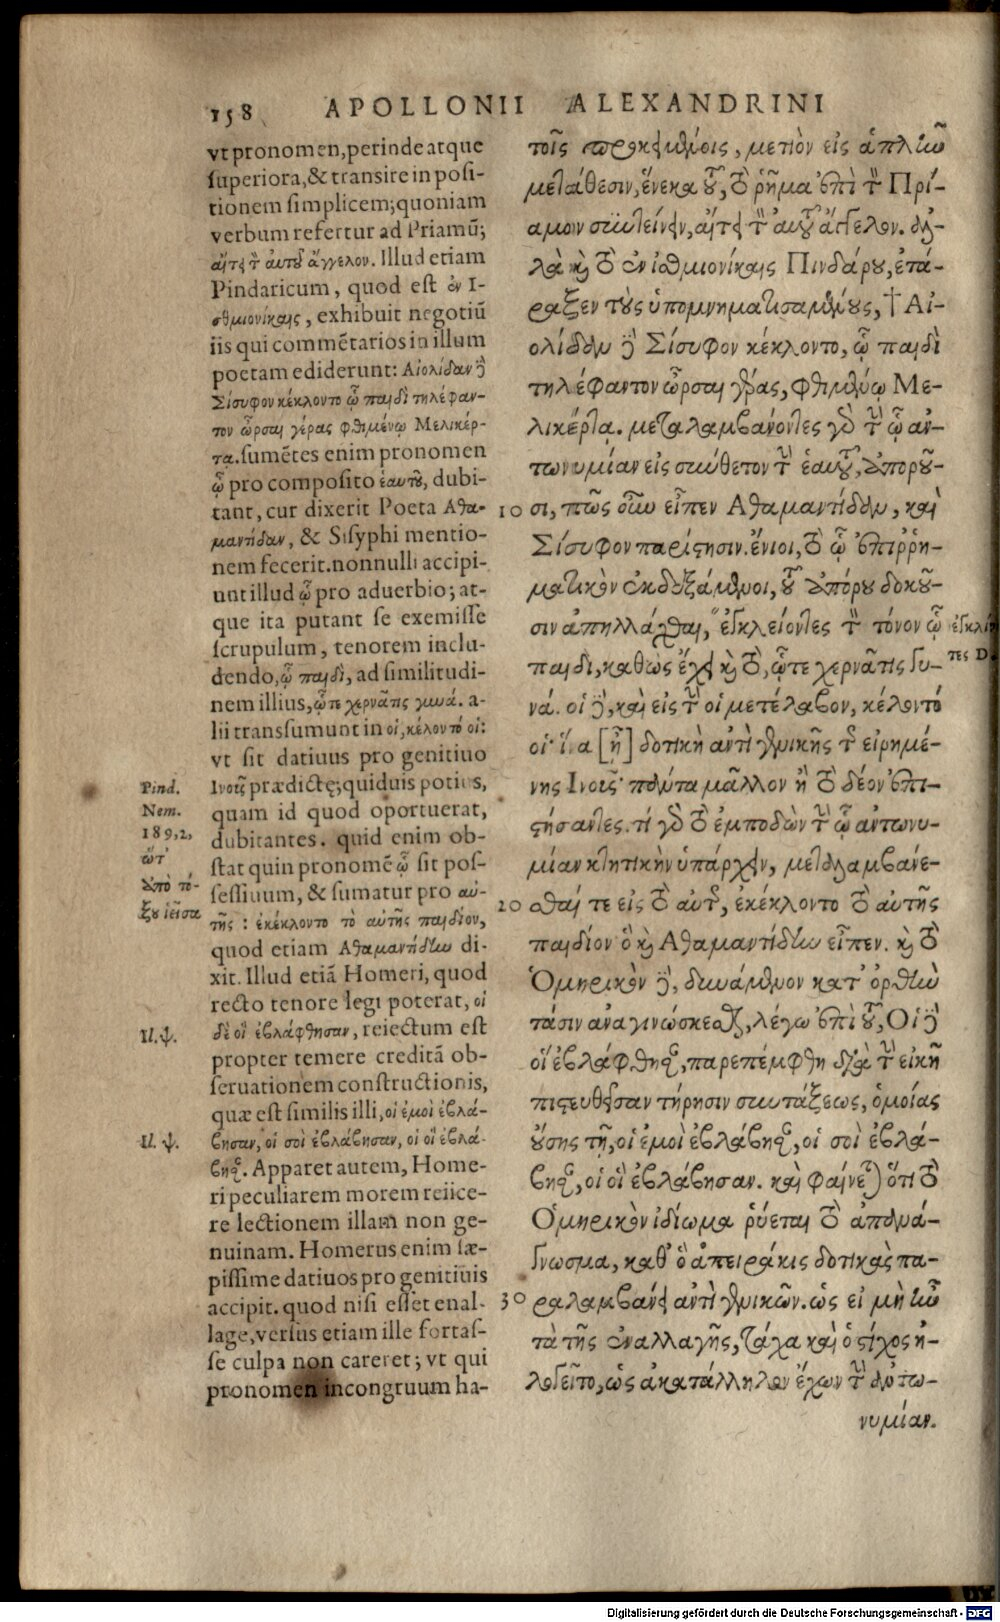 158 APOLLONII ALEXANDRINI
vt pronomen, perinde atque
superiora, & transire in posi-
tionem simplicem; quoniam
verbum refertur ad Priamũ;
αἴτει τ̀ αὐτοῦ ἄγγελον. Illud etiam
Pindaricum, quod est ἐν Ι-
σθμιονίκαις, exhibuit negotiũ
iis qui commẽtarios in illum
poetam ediderunt: Αἰολίδαν δὲ
Σίσυφον κέκλοντο ᾧ παιδὶ τηλέφαν-
τον ὦρσαι γέρας φθιμένῳ Μελικέρ-
τα. sumẽtes enim pronomen
ᾧ pro composito ἑαυτοῦ, dubi-
tant, cur dixerit Poeta Αθα-
μαντίδαν, & Sisyphi mentio-
nem fecerit. nonnulli accipi-
unt illud ᾧ pro aduerbio; at-
que ita putant se exemisse
scrupulum, tenorem inclu-
dendo, ᾧ παιδὶ, ad similitudi-
nem illius, ᾧτε χερνᾶτις γυνά. a-
lii transsumunt in οἱ, κέλοντό οἱ:
vt sit datiuus pro genitiuo
Ινοῦς prædictę; quiduis potius,
quam id quod oportuerat,
dubitantes. quid enim ob-
stat quin pronomẽ ᾧ sit pos-
sessiuum, & sumatur pro αὐ-
τῆς: ἐκέκλοντο τὸ αὐτῆς παιδίον,
quod etiam Αθαμαντίδην di-
xit. Illud etiã Homeri, quod
recto tenore legi poterat, οἱ
δὲ οἳ ἐβλάφθησαν, reiectum est
propter temere creditã ob-
seruationem constructionis,
quæ est similis illi, οἱ ἐμοὶ ἐβλά-
βησαν, οἱ σοὶ ἐβλάβησαν, οἱ οἷ ἐβλά-
βησαν. Apparet autem, Home-
ri peculiarem morem reiice-
re lectionem illam non ge-
nuinam. Homerus enim sæ-
pissime datiuos pro genitiuis
accipit. quod nisi esset enal-
lage, versus etiam ille fortas-
se culpa non careret; vt qui
pronomen incongruum ha-
Pind.
Nem.
189,2,
ὥτ'
ἀπὸ τό-
ξου ἱεῖσα
Il. ψ.
Il. ψ.
τοῖς προκειμένοις, μετιὸν εἰς ἁπλῆν
μετάθεσιν, ἕνεκα τοῦ, τὸ ῥῆμα ἐπὶ τὸν Πρί-
αμον συντείνειν, αἴτει τὸν αὐτοῦ ἄγγελον. ἀλ-
λὰ καὶ τὸ ἐν ἰσθμιονίκαις Πινδάρου, ἐτά-
ραξεν τοὺς ὑπομνηματισαμένους, † Αἰ-
ολίδαν δὲ Σίσυφον κέκλοντο, ᾧ παιδὶ
τηλέφαντον ὦρσαι γέρας, φθιμένῳ Με-
λικέρτᾳ. μεταλαμβάνοντες γὰρ τὴν ᾧ ἀν-
τωνυμίαν εἰς σύνθετον τὴν ἑαυτοῦ, ἀποροῦ-
10 σι, πῶς οὖν εἶπεν Αθαμαντίδαν, καὶ
Σίσυφον παρίστησιν. ἔνιοι, τὸ ᾧ ἐπιῤῥη-
ματικὸν ἐκδεξάμενοι, τοῦ ἀπόρου δοκοῦ-
σιν ἀπηλλάχθαι, " ἐγκλείοντες τὸν τόνον ᾧ
παιδὶ, καθὼς ἔχει καὶ τὸ, ᾧτε χερνᾶτις γυ-
νά. οἱ δὲ, καὶ εἰς τὴν οἱ μετέλαβον, κέλοντό
οἱ· ἵ. α [ἦ] δοτικὴ ἀντὶ γενικῆς τῆς εἰρημέ-
νης Ινοῦς· πάντα μᾶλλον ἢ τὸ δέον ἐπι-
στήσαντες. τί γὰρ τὸ ἐμποδὼν τὴν ᾧ ἀντωνυ-
μίαν κτητικὴν ὑπάρχειν, μεταλαμβάνε-
20 σθαί τε εἰς τὸ αὐτῆς, ἐκέκλοντο τὸ αὐτῆς
παιδίον ὃ καὶ Αθαμαντίδην εἶπεν. καὶ τὸ
Ὁμηρικὸν δὲ, δυνάμενον κατ' ὀρθὴν
τάσιν ἀναγινώσκεσθαι, λέγω ἐπὶ τοῦ, Οἱ δὲ
οἷ ἐβλάφθησαν, παρεπέμφθη διὰ τὴν εἰκῆ
πιστευθεῖσαν τήρησιν συντάξεως, ὁμοίας
οὔσης τῇ, οἱ ἐμοὶ ἐβλάβησαν, οἱ σοὶ ἐβλά-
βησαν, οἱ οἷ ἐβλάβησαν. καὶ φαίνεται ὅτι τὸ
Ὁμηρικὸν ἰδίωμα ῥύεται τὸ ἀπανά-
γνωσμα, καθ' ὃ ἀπειράκις δοτικὰς πα-
30 ραλαμβάνει ἀντὶ γενικῶν. ὡς εἰ μὴ ἦν
τὰ τῆς ἐναλλαγῆς, τάχα καὶ ὁ στίχος ἠ-
λογεῖτο, ὡς ἀκατάλληλον ἔχων τὴν ἀντω-
νυμίαν.